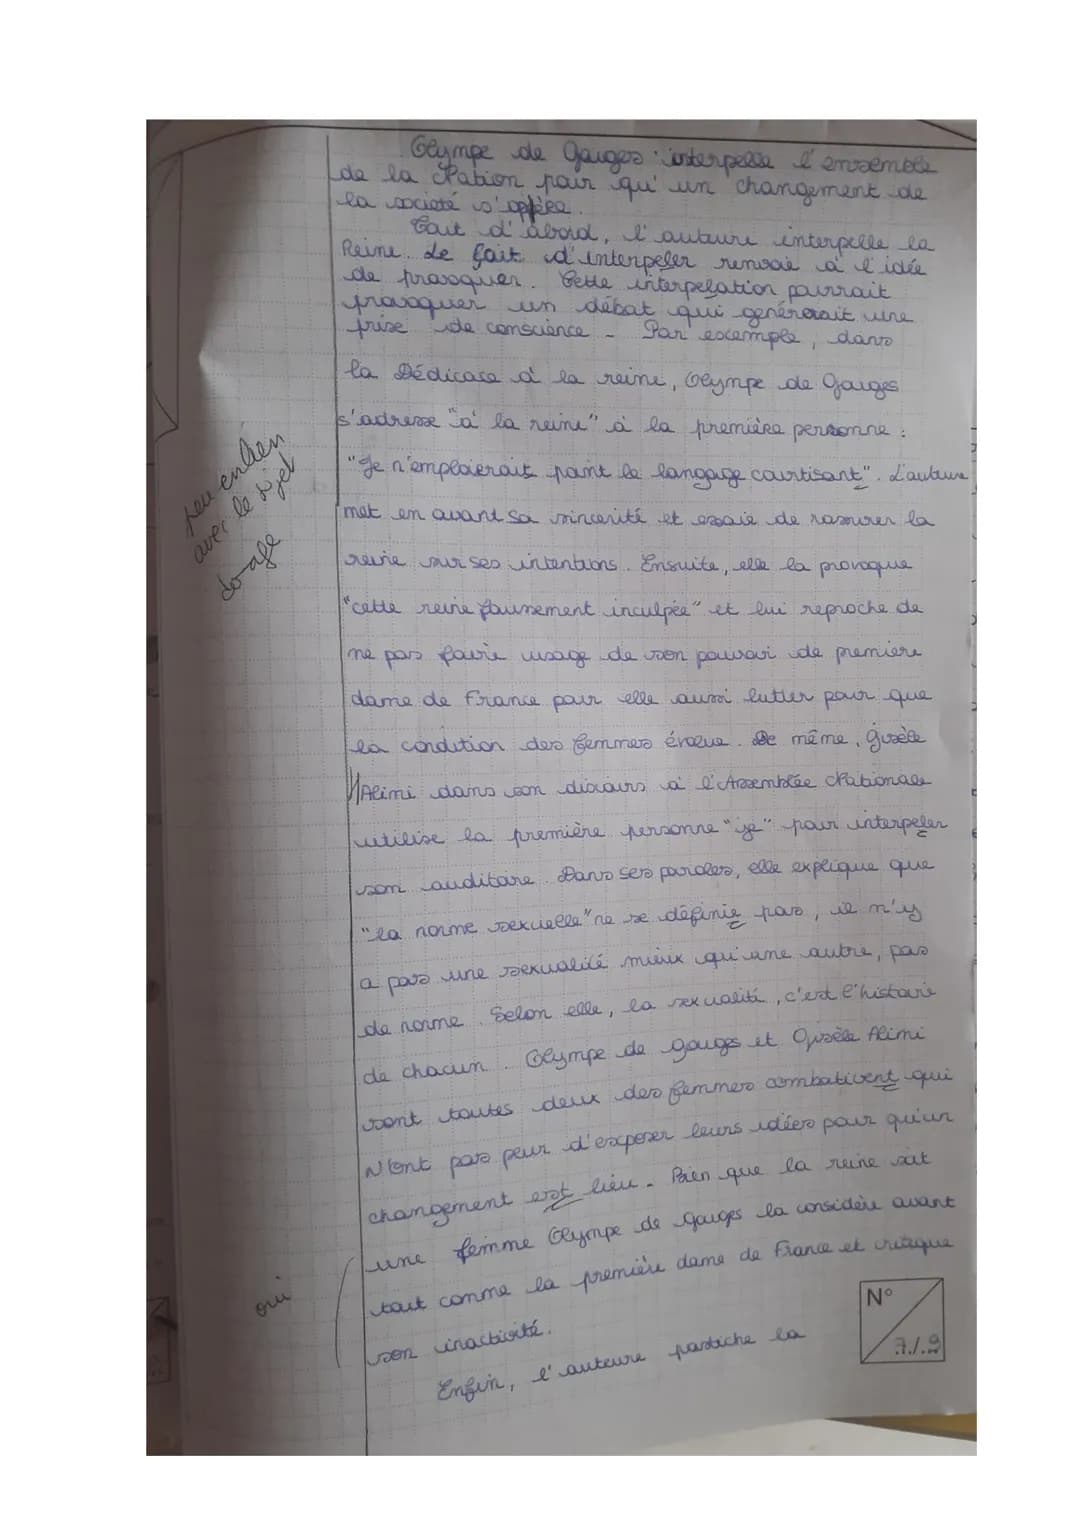 Olympe de Gouges interpelle l'ensemble
de la Nation pour qu'un changement de
la société s'opère.
Tout d'abord, l'auteure interpelle la
Reine. Le fait d'interpeler renvoie à l'idée
de provoquer. Cette interpelation pourrait
provoquer un débat qui génèrerait une
prise de conscience. Par exemple, dans
la Dédicace à la reine, Olympe de Gouges
s'adresse "à la reine" à la première personne :
"Je n'emploierait point le langage courtisant". L'auteure
met en avant sa sincérité et essaie de rassurer la
reine sur ses intentions. Ensuite, elle la provoque
"cette reine faussement inculpée" et lui reproche de
ne pas faire usage de son pouvoir de première
dame de France pour elle aussi lutter pour que
la condition des femmes évolue. De même, Gisèle
H Alimi dans son discours à l'Assemblée Nationale
utilise la première personne "je" pour interpeler
son auditoire. Dans ses paroles, elle explique que
"la norme sexuelle" ne se définie pas, il n'y
a pas une sexualité mieux qu'une autre, pas
de norme. Selon elle, la sexualité, c'est l'histoire
de chacun. Olympe de Gouges et Gisèle Alimi
sont toutes deux des femmes combativent qui
N'ont pas peur d'exposer leurs idées pour qu'un
changement est lieu. Bien que la reine soit
une femme Olympe de Gouges la considère avant
tout comme la première dame de France et critique
son inactivité.
Enfin, l'auteure pastiche la
peu en lien
avec le sujet
oui
N°
7./.9